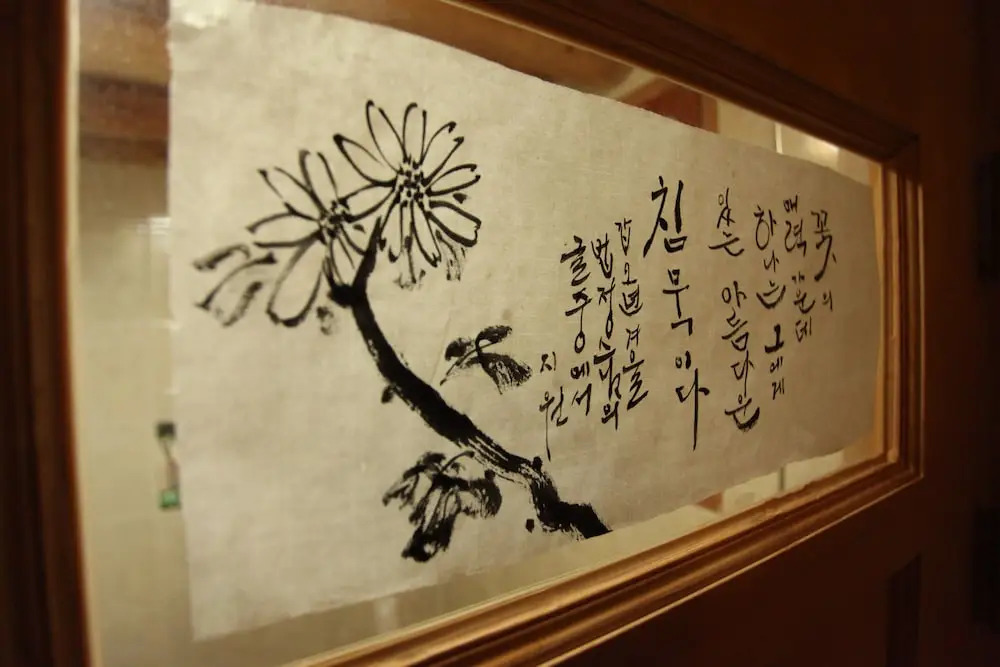 꽃의
매력 가운데
하나는 그에게
있는 아름다운
침묵이다
갑오년 겨울
법정스님의
글중에서
지원